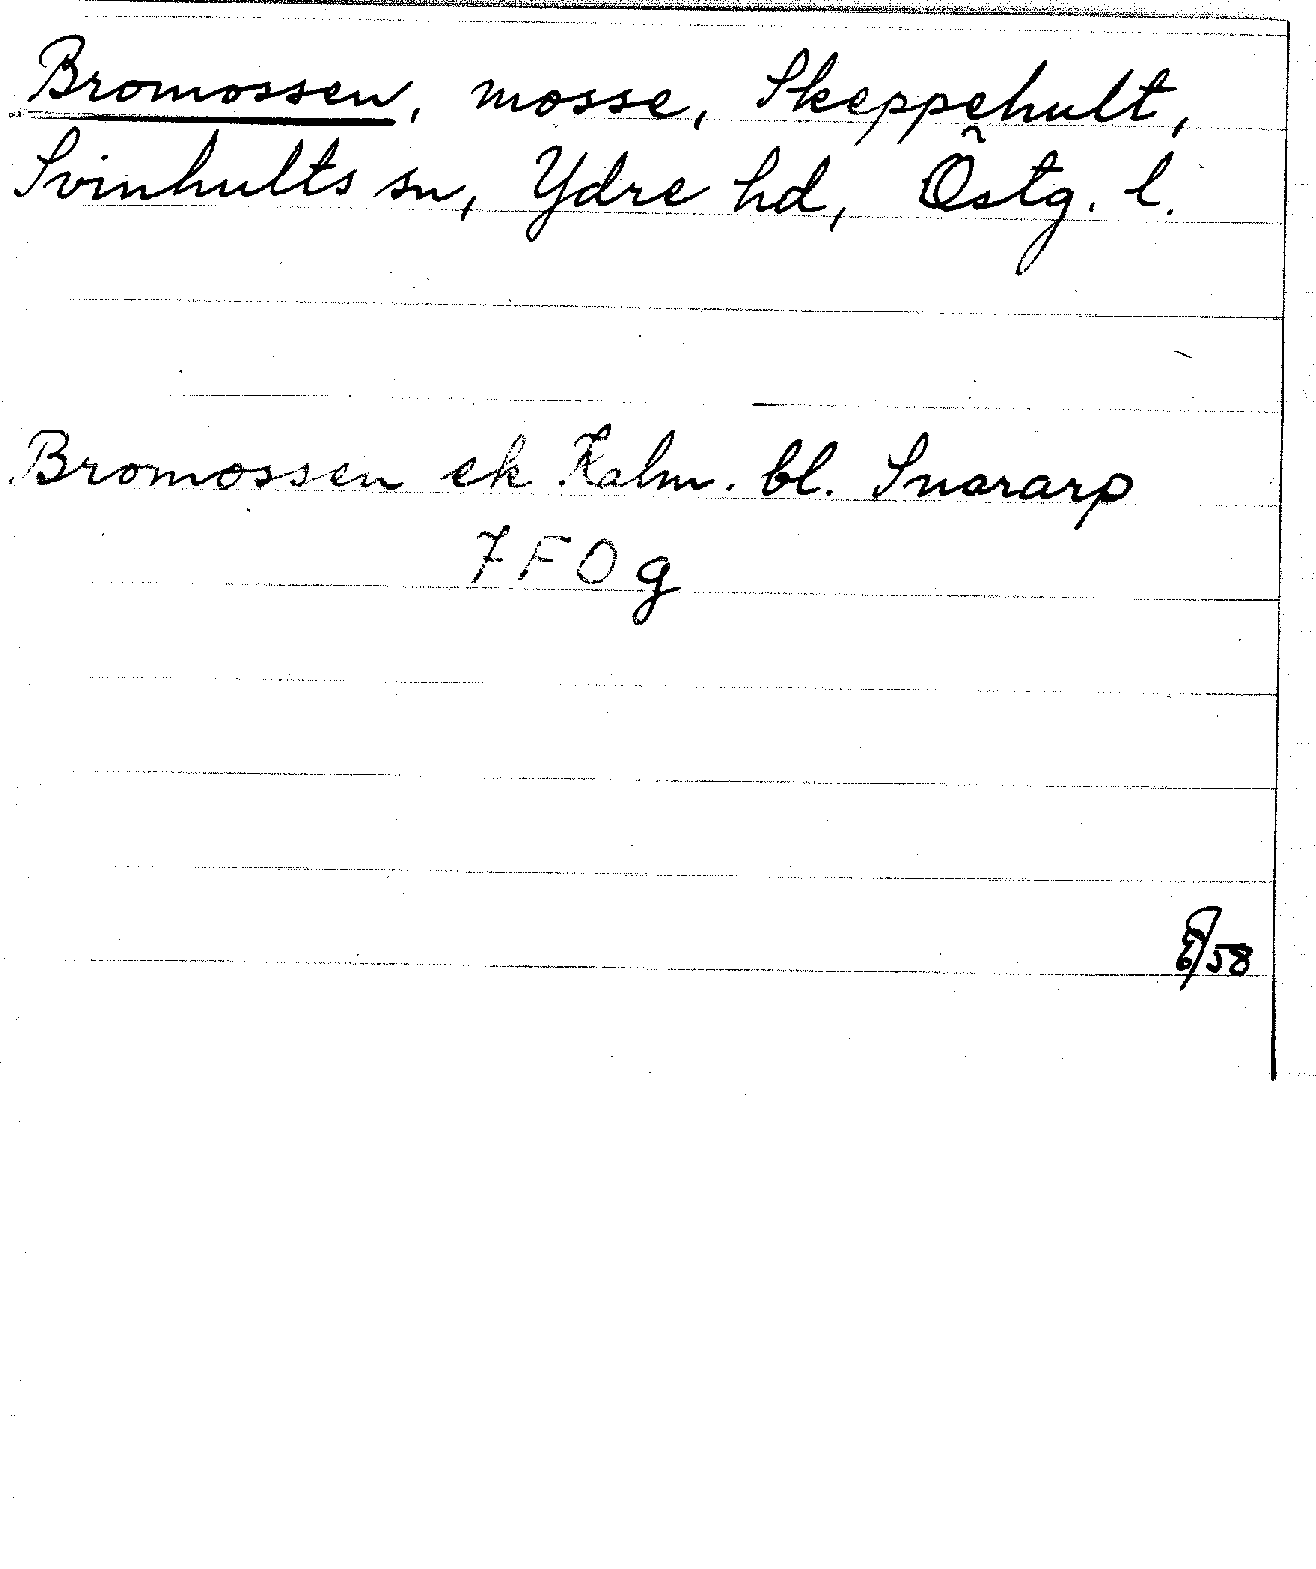 Bromossen, mosse, Skeppehult,
Svinhults sn, Ydre hd, Östg. l.
Bromossen ek Kalm. bl. Snararp
7F0g
/58